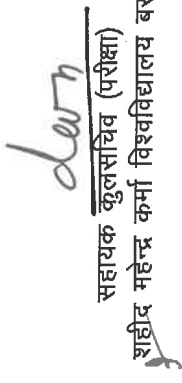 सहायक कुलसचिव (परीक्षा)
शहीद महेन्द्र कर्मा विश्वविद्यालय बस